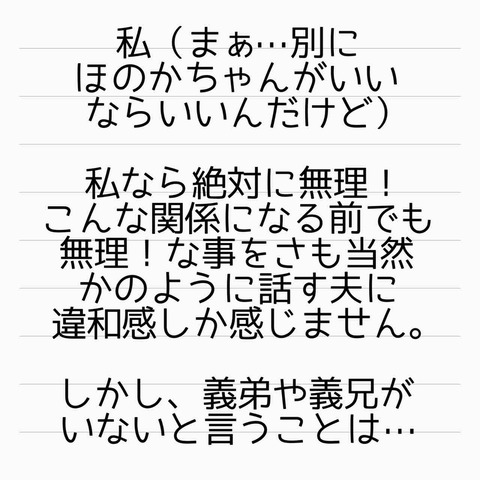 私（まぁ…別に
ほのかちゃんがいい
ならいいんだけど）
私なら絶対に無理！
こんな関係になる前でも
無理！な事をさも当然
かのように話す夫に
違和感しか感じません。
しかし、義弟や義兄が
いないと言うことは…